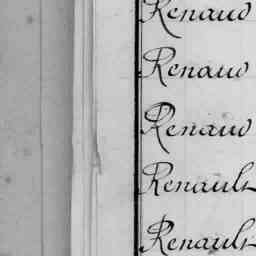 Renaud
Renaud
Renaud
Renault
Renault